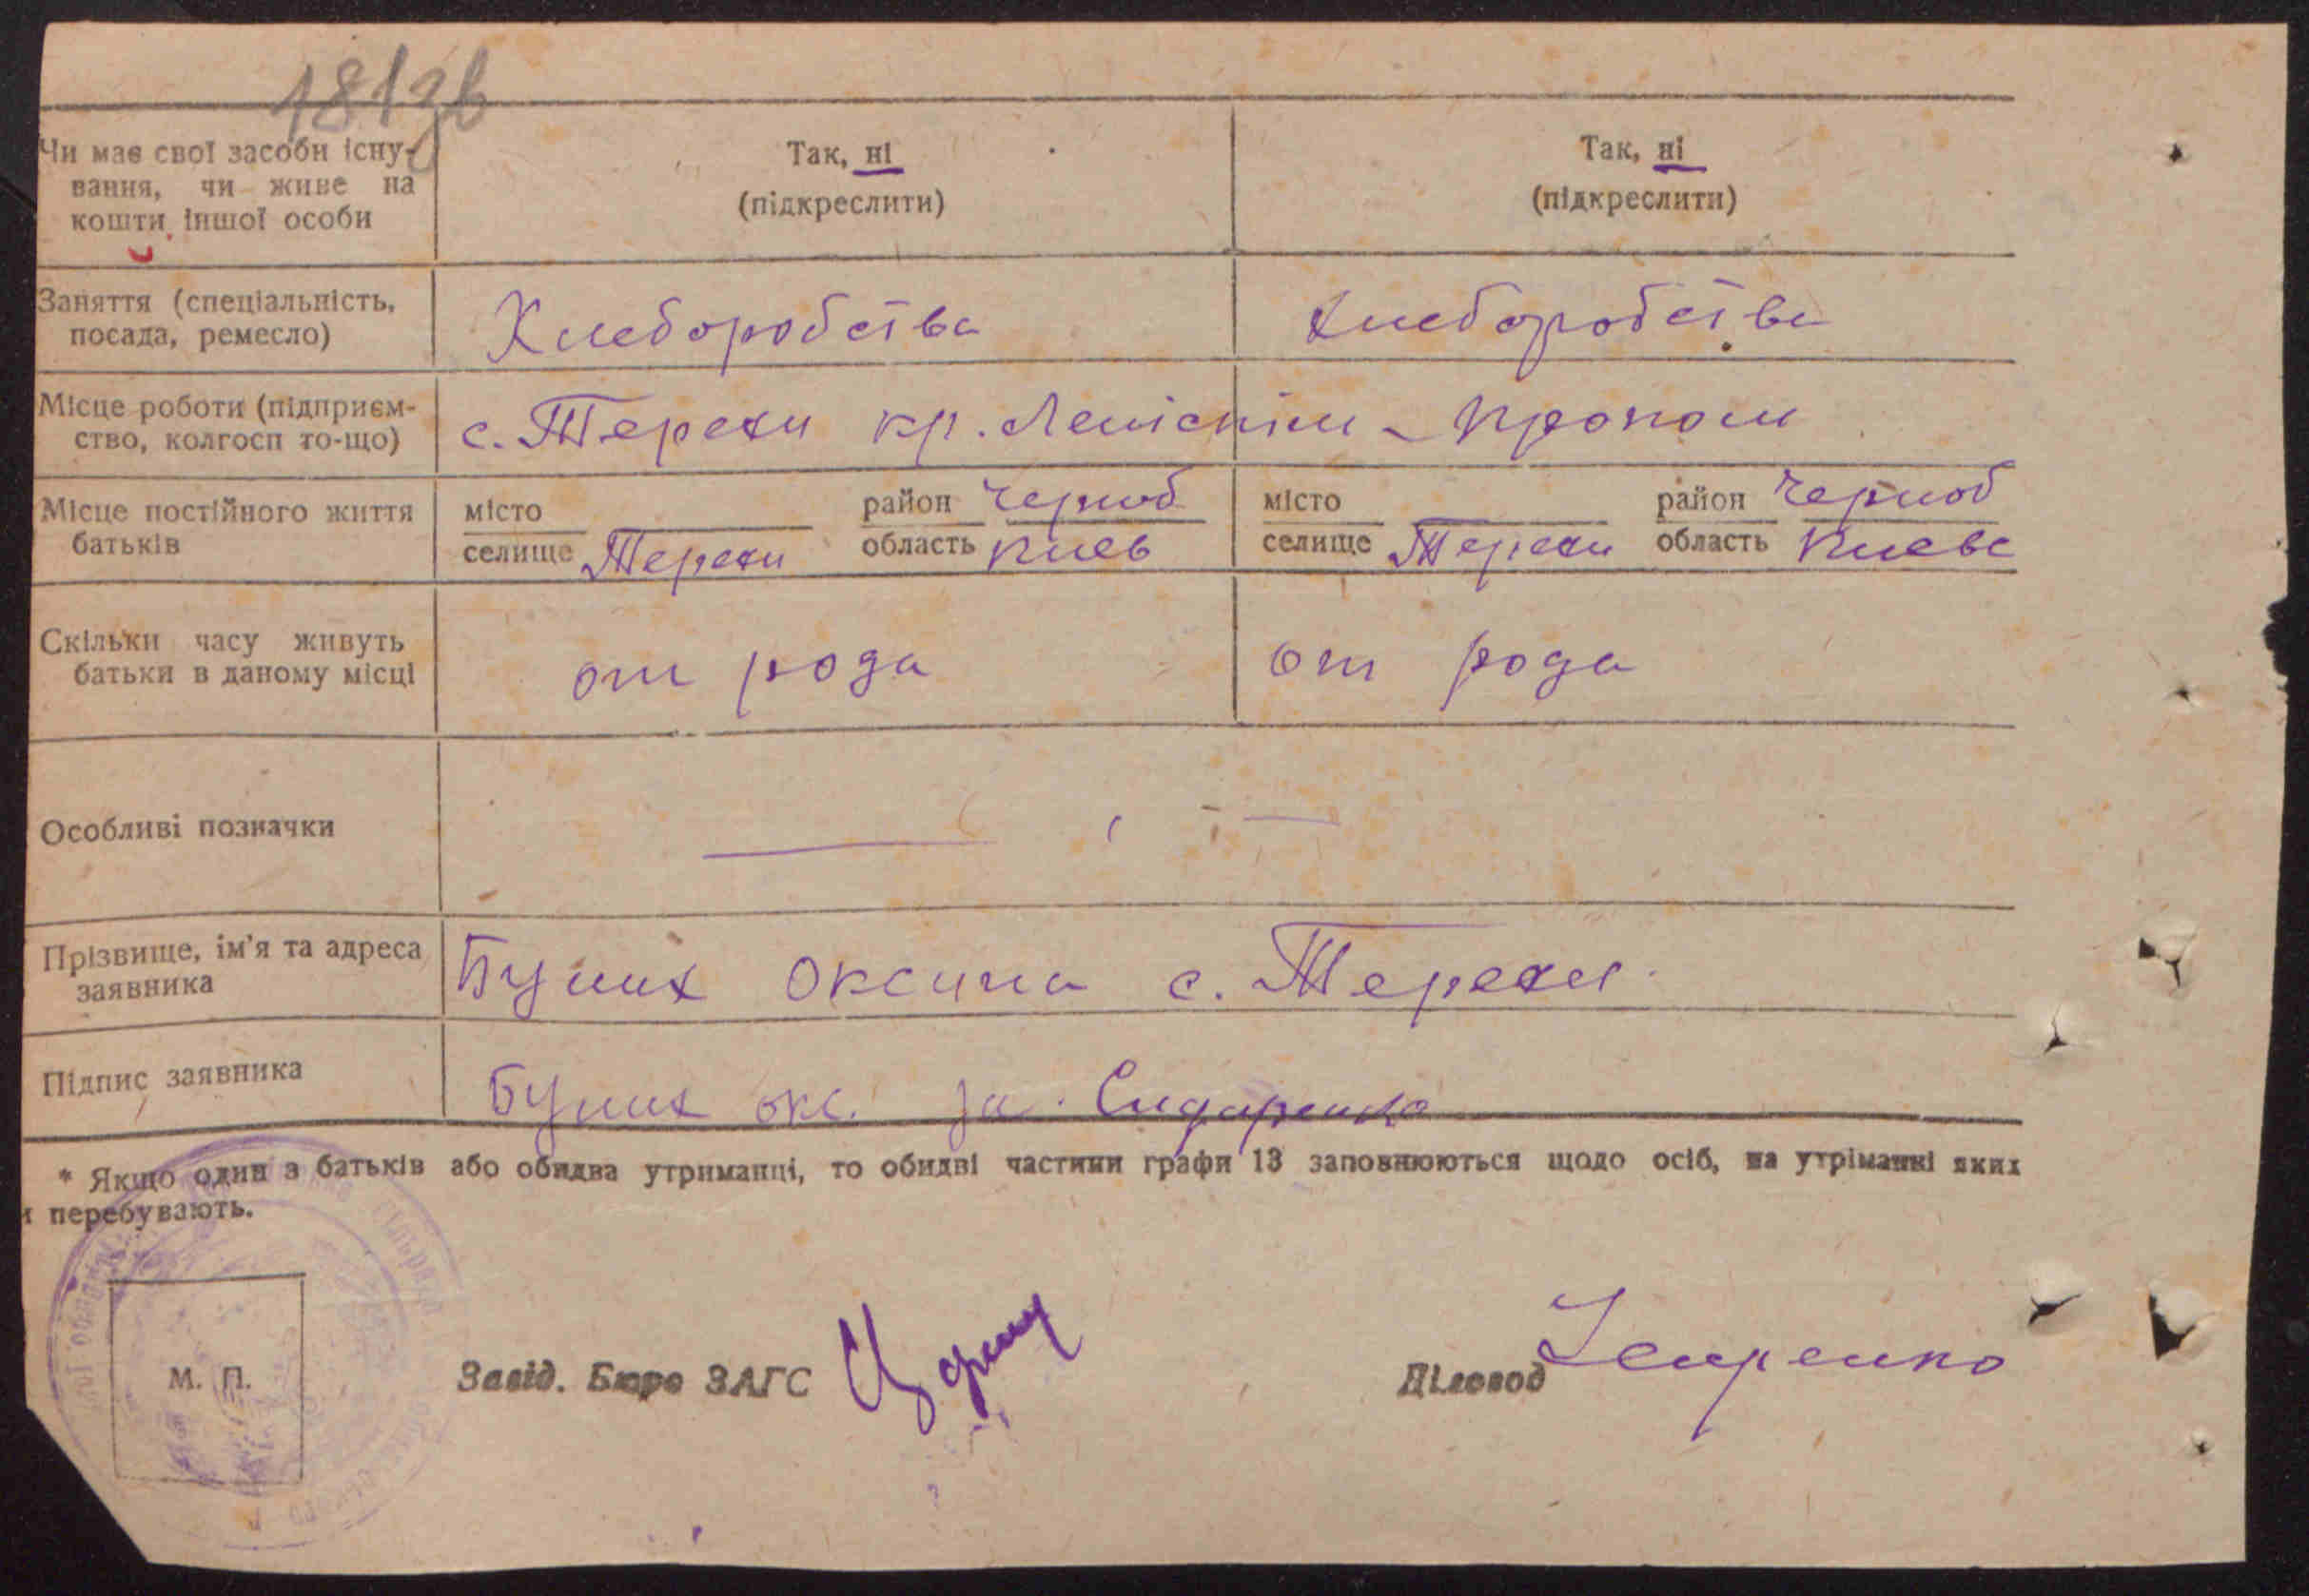 181зв
Чи має свої засоби існу-
вання, чи живе на
кошти іншої особи
Так, ні
(підкреслити)
Так, ні
(підкреслити)
Заняття (спеціальність,
посада, ремесло)
Хлеборобства
Хлеборобства
Місце роботи (підприєм-
ство, колгосп то-що)
с. Терехи кр.
Місце постійного життя
батьків
місто
селище Терехи
район Черноб
область Киев
місто
селище Терехи
район Черноб
область Киевс
Скільки часу живуть
батьки в даному місці
от рода
от рода
Особливі позначки
Прізвище, ім'я та адреса
заявника
Оксина с. Терехи
Підпис заявника
окс. за Сидаренко
* Якщо один з батьків або обидва утриманці, то обидві частини графи 13 заповнюються щодо осіб, на утріманні яких
и перебувають.
М. П.
Завід. Бюро ЗАГС
Діловод